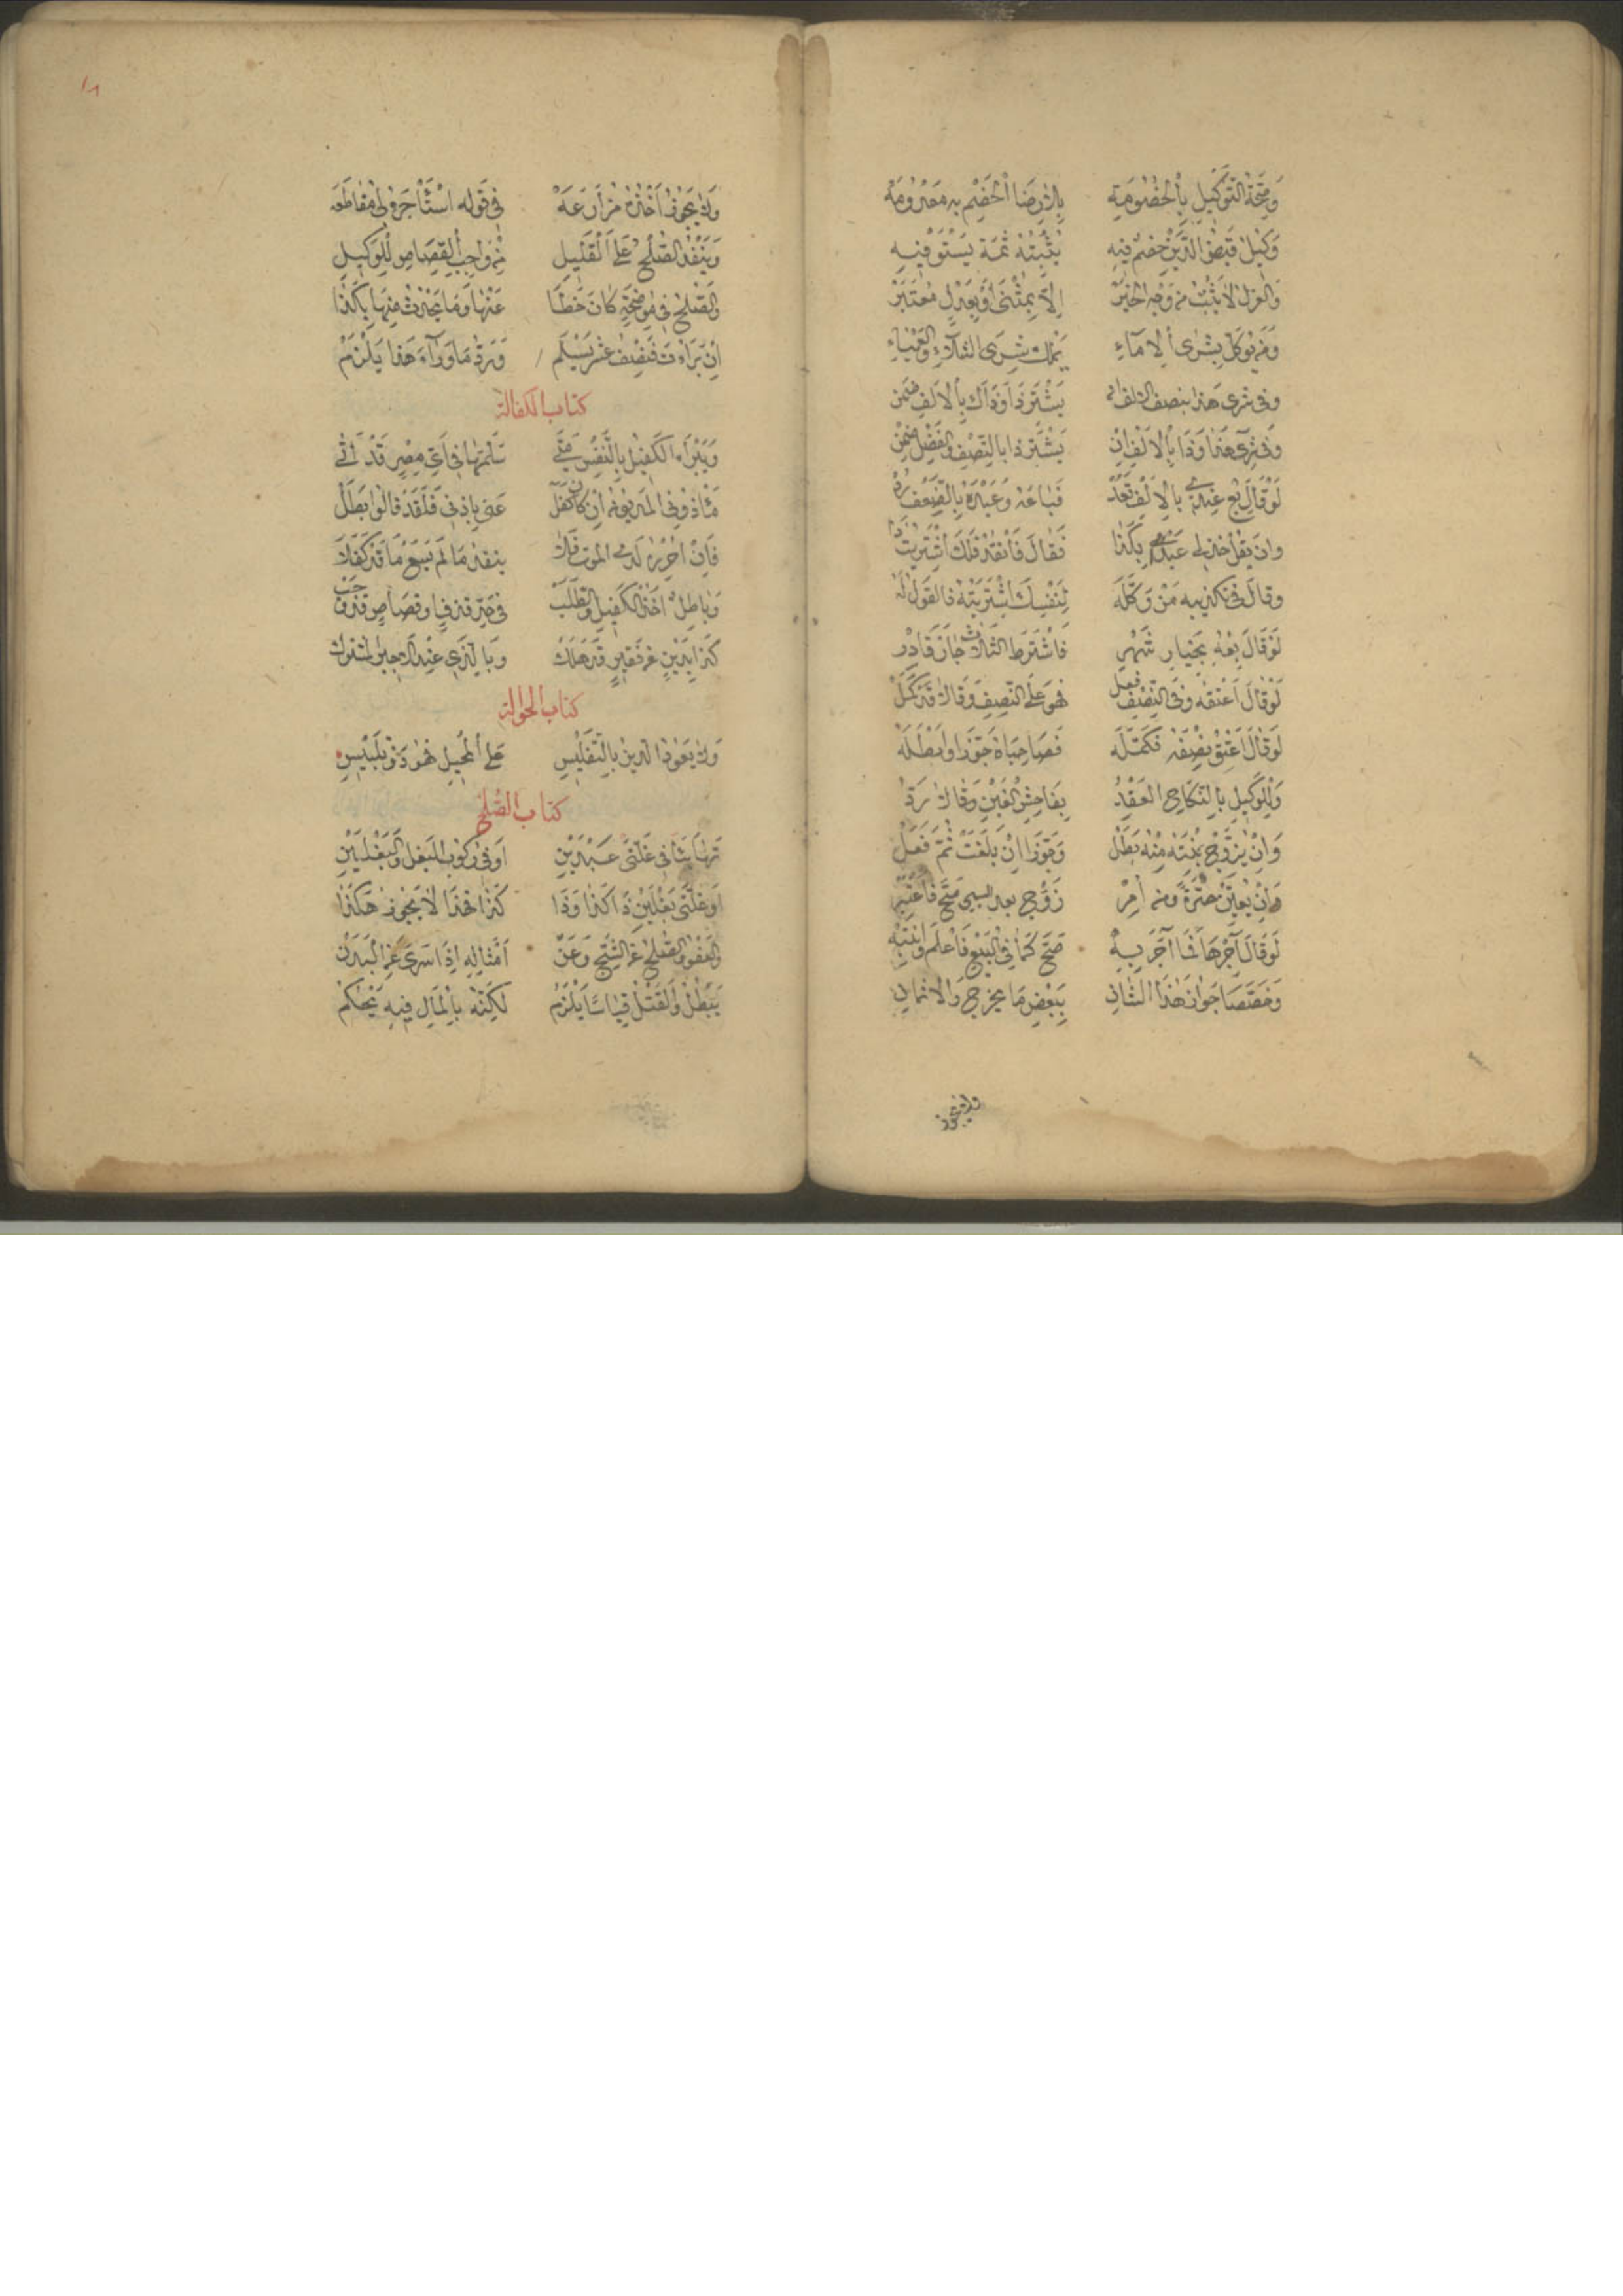 وَصِحَّةُ التَّوْكِيلِ بِالْخُصُومَةِ بِلَا رِضَا الْخَصْمِ بِهِ مَعْدُومَة
وَكِيلُ قَبْضِ الدَّيْنِ خَصْمٌ فِيهِ يُثْبِتُهُ ثَمَّةَ يَسْتَوْفِيهِ
وَالْعَزْلُ لَا يَثْبُتُ مِنْ وَجْهِ الْخَبَرْ إِلَّا بِمَثْنَى أَوْ بِعَدْلٍ مُعْتَبَرْ
وَمَنْ يُوَكَّلْ بِشِرَى الْإِمَاءِ يَمْلِكْ شِرَى الشَّلَّاءِ وَالْعَمْيَاءِ
وفي شرى هذا بنصف الالف ان يَشْتَرِ ذَا وَذَاكَ بِالْأَلْفِ ضمن
وَفِي شِرَى هَذَا وَذَا بِالْأَلْفِ إِنْ يَشْتَرِ ذا بِالنِّصْفِ وَالْفَضْلِ ضمن
لَوْ قَالَ بِعْ عَبْدِي بِالْأَلْفِ فَبَاعَهُ وَعَبْدَهُ بِالضِّعْفِ
وان يقل خذ لي عبدا بِكَذَا فَقَالَ فَانْقُدْ فَلَكَ اشْتَرَيْتُ ذَا
وقالَ فِي تكذيبه مَنْ وَكَّلَه لِنَفْسِكَ اشْتَرَيْتَهُ فالقول لَه
لَوْ قَالَ بِعْهُ بِخِيَارِ شَهْرٍ فَاشْتَرَطَ الثَّلَاثَ جَازَ فَادْرِ
لَوْ قَالَ أَعْتِقْهُ وَفِي النِّصْفِ فعل فَهْوَ عَلَى النِّصْفِ وَقَالَا قَدْ كَمُلْ
لَوْ قَالَ أَعْتِقْ نِصْفَهُ فَكَمَّلَه فَصَاحِبَاهُ جَوَّزَا وَأَبْطَلَه
وَلِلْوَكِيلِ بِالنِّكَاحِ الْعَقْدُ بِفَاحِشِ الْغَبْنِ وَقَالَا رَدُّ
وَإِنْ يُزَوِّجْ بِنْتَهُ مِنْهُ بَطَلْ وَجَوَّزَا إِنْ بَلَغَتْ ثُمَّ فَعَلْ
وَإِنْ يُعَيَّنْ حُرَّةٌ وَمَنْ أُمِرْ زَوَّجَ بعد السبي صَحَّ فَاعْتَبِرْ
لَوْ قَالَ آجِرْهَا فَمَا آجَرَ بِهْ صَحَّ كَمَا فِي الْبَيْعِ فَاعْلَمْ وَانْتَبِهْ
وَخَصَّصَا جَوَازَ هَذَا الثَّانِي بِبَعْضِ مَا يَخْرُجُ وَالْأَثْمَانِ
ولا يجوز
وَلَا يَجُوزُ أَخْذُهُ مُزَارَعَة فِي قَوْلِهِ اسْتَأْجِرْ لِي مُقَاطَعَة
وَيَنْفُذُ الصُّلْحُ عَلَى الْقَلِيلِ مِنْ وَاجِبِ الْقِصَاصِ لِلْوَكِيلِ
وَالصُّلْحُ فِي مُوضِحَةٍ كَانَ خَطَا عَنْهَا وَمَا يَحْدُثُ مِنْهَا
إِنْ بَرَأَتْ فَنِصْفُ عُشْرٍ يَسْلَمُ وَرَدُّ مَا وَرَاءَ هَذَا يَلْزَمُ
كتاب الكفالة
وَيَبْرَأُ الْكَفِيلُ بِالنَّفْسِ مَتَى سَلَّمَهَا فِي أَيِّ مِصْرٍ قَدْ أَتَى
مَأْذُونُ الْمَدْيُونِ إِنْ كَانَ كَفَلْ عَنِّي بِإِذْنِي فَلَقَدْ قَالُوا بَطَلْ
وَبَاطِلٌ أَخْذُ الْكَفِيلِ وَالطَّلَبْ فِي حَدِّ قَذْفٍ أَوْ قِصَاصٍ قَدْ وَجَبْ
كَذَا بِدَيْنٍ عَنْ فَقِيرٍ قَدْ هَلَكْ وَبِالَّذِي عِنْدَ الْأَجِيرِ الْمُشْتَرَكْ
كتاب الحوالة
وَلَا يَعُودُ الدَّيْنُ بِالتَّفْلِيسِ عَلَى الْمُحِيلِ فَهْوَ ذُو تَلْبِيسِ
كتاب الصلح
تَهَايَئَا فِي غَلَّتَيْ عَبْدَيْنِ أَوْ فِي رُكُوبِ الْبَغْلِ وَالْبَغْلَيْنِ
أَوْ غَلَّتَيْ بَغْلَيْنِ ذَا كَذَا وَذَا كَذَا فَهَذَا لَا يَجُوزُ هَكَذَا
وَالْعَفْوُ وَالصُّلْحُ عَنِ الشَّجِّ وَعَنْ أَمْثَالِهِ إِذَا سَرَى عَنِ الْبَدَنْ
يَبْطُلُ وَالْقَتْلُ قِيَاسًا يَلْزَمُ لَكِنَّهُ بِالْمَالِ فِيهِ يُحْكَمُ